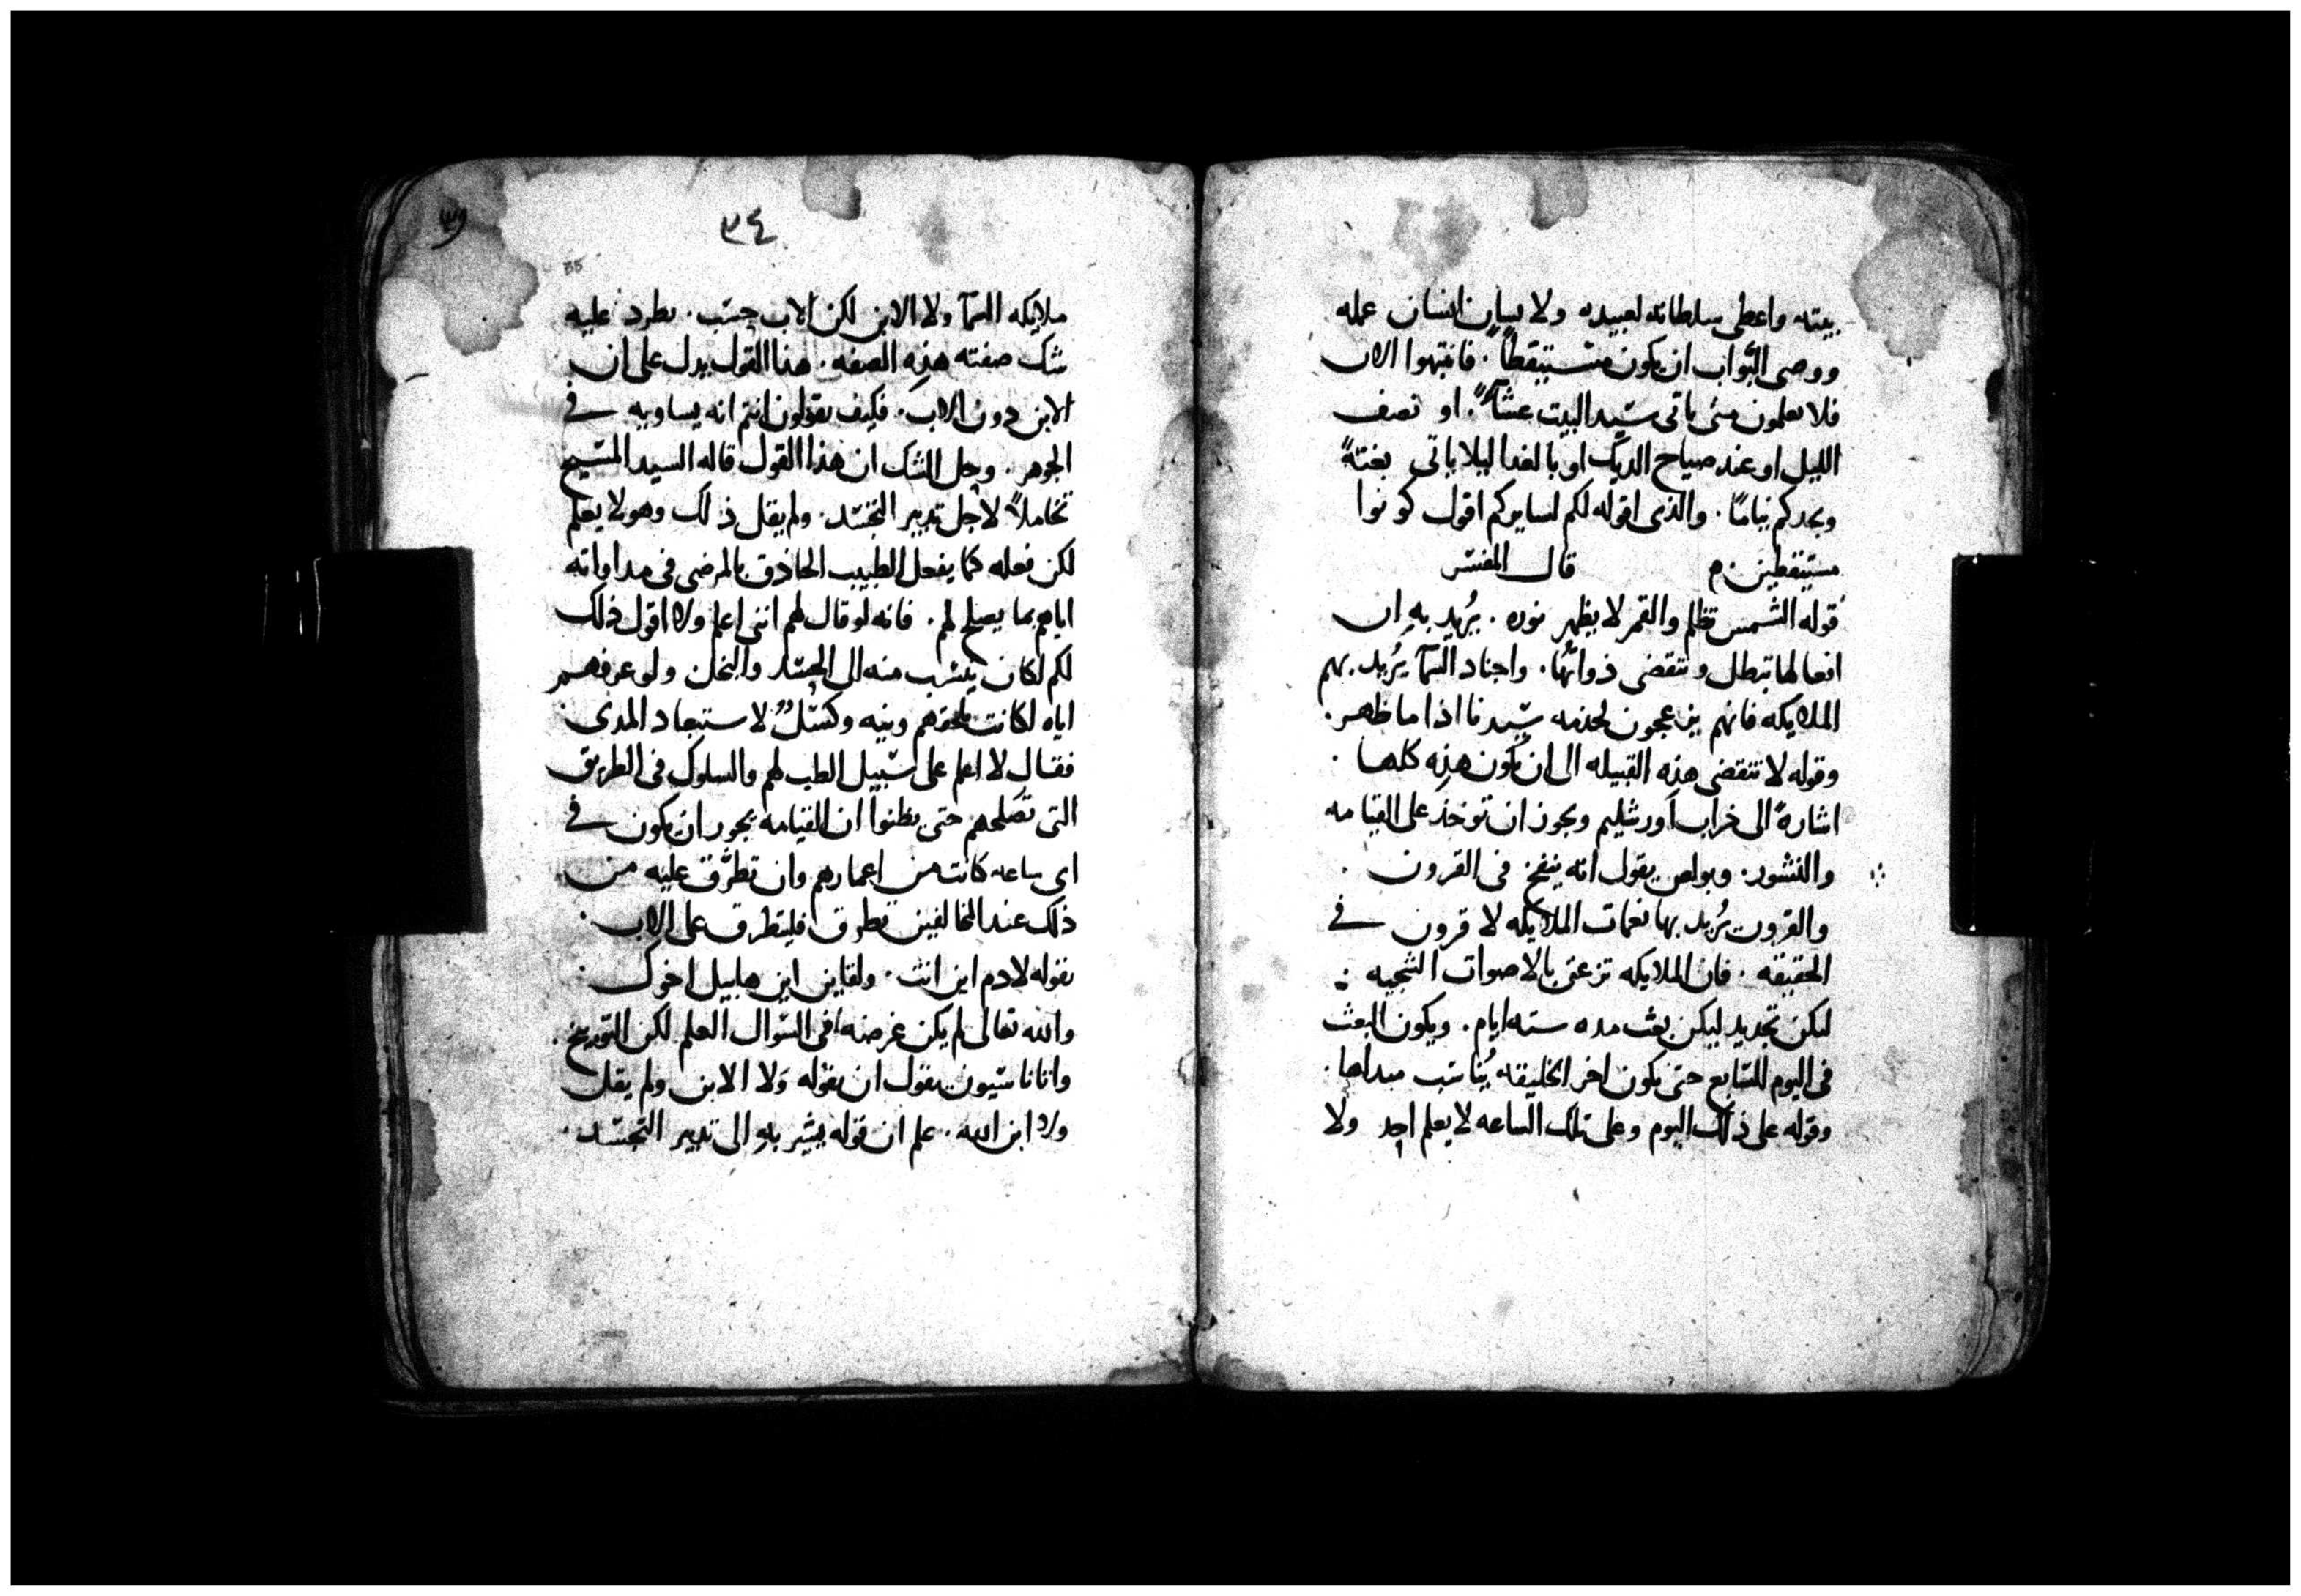 بيته واعطى سلطانه لعبيده ولا نسان انسان عمله
ووصى البواب ان يكون مستيقظاً. فانتبهوا الان
فلا تعلمون متى ياتى سيد البيت عشاً. او نصف
الليل او عند صياح الديك او بالغدا ليلا ياتى بغتهً
ويجدكم نياماً. والذى اقوله لكم لسايركم اقول كونوا
مستيقظين قال المفسر
قوله الشمس تظلم والقمر لا يظهر نوره. يُريد به ان
افعالها تبطل وتنقضى ذواتُها. واجناد السمآ يُريد بهم
الملايكه فانهم ينزعجون لخدمه سيدنا اذا ما ظهر.
وقوله لا تنقضى هذه القبيله الى ان تكون هذه كلها.
اشارهً الى خراب اورشليم ويجوز ان توخذ على القيامه
والنشور. وبولص يقول انه ينفخ فى القرون.
والقرون يُريد بها نغمات الملايكه لا قرون فى
الحقيقه. فان الملايكه تزعق بالاصوات الشجيه
ليكن تجديد ليكن بعث مده سته ايام. ويكون البعث
فى اليوم السابع حتى يكون اخر الخليقه يُناسب مبداها.
وقوله على ذلك اليوم وعلى تلك الساعه لا يعلم احد ولا
٣٤
35
ملايكه السمآ ولا الابن لكن الاب حسب. يطرد عليه
شك صفته هذه الصفه. هذا القول يدل على ان
الابن دون الاب. فكيف تقولون انتم انه يساويه فى
الجوهر. وحل الشك ان هذا القول قاله السيد المسيح
تحاملاً لاجل تدبير التجسد. ولم يقل ذلك وهو لا يعلم
لكن فعله كما يفعل الطبيب الحاذق بالمرضى فى مداواته
اياهم بما يصلح لهم. فانه لو قال لهم اننى اعلم ولا اقول ذلك
لكم لكان ينسب منه الى الحسد والبخل ولو عرفهم
اياه لكانت تلحقهم ونيه وكسلٌ لاستبعاد المدى
فقال لا اعلم على سبيل الطب لهم والسلوك فى الطريق
التى تصلحهم حتى يظنوا ان القيامه يجوز ان يكون فى
اى ساعه كانت من اعمارهم وان تطرَّق عليه من
ذلك عند المخالفين تطرق فليتطرق على الاب.
بقوله لادم اين انت. ولقاين اين هابيل اخوك.
والله تعالى لم يكن غرضه فى السوال العلم لكن التوبيخ.
واتاناسيون يقول ان بقوله ولا الابن ولم يقل
ولا ابن الله. علم ان قوله يشير به الى تدبير التجسد.